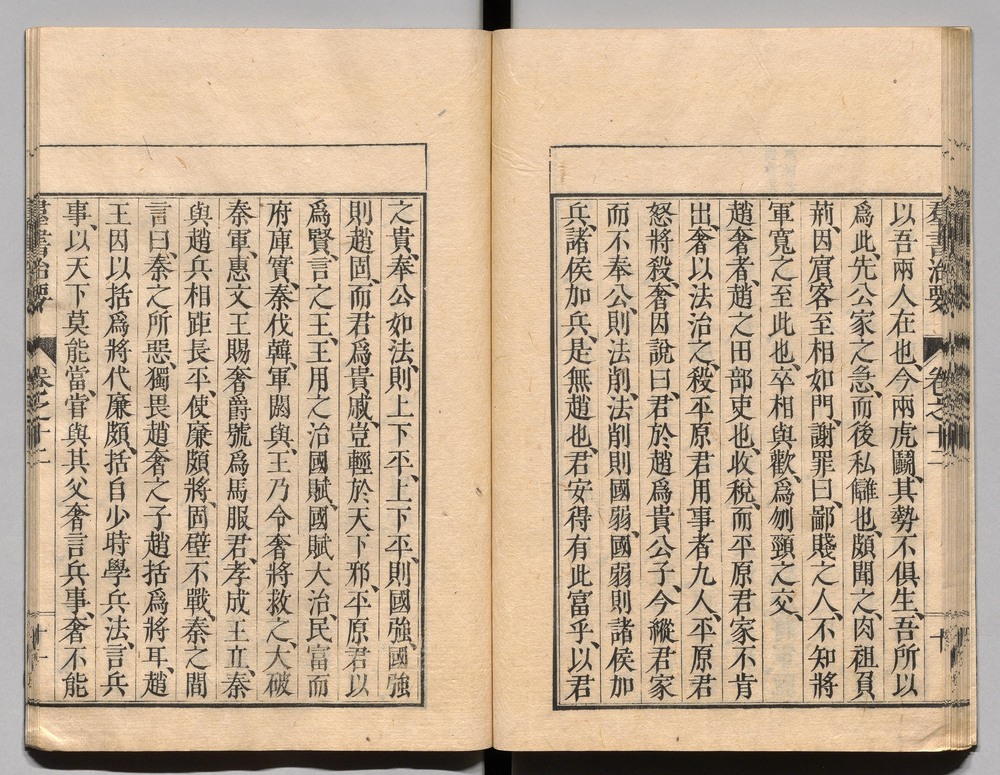 羣書治要 卷之十二 十
以吾兩人在也、今兩虎鬭、其勢不俱生、吾所以
爲此、先公家之急、而後私讎也、頗聞之、肉袒負
荊、因賓客至相如門、謝罪曰、鄙賤之人、不知將
軍寬之至此也、卒相與歡、爲刎頸之交、
趙奢者、趙之田部吏也、收稅、而平原君家不肯
出、奢以法治之、殺平原君用事者九人、平原君
怒將殺奢、因說曰、君於趙爲貴公子、今縱君家
而不奉公、則法削、法削則國弱、國弱則諸侯加
兵、諸侯加兵、是無趙也、君安得有此富乎、以君
之貴、奉公如法、則上下平、上下平、則國強、國強
則趙固、而君爲貴戚、豈輕於天下邪、平原君以
爲賢、言之王、王用之治國賦、國賦大治、民富而
府庫實、秦伐韓、軍閼與、王乃令奢將救之、大破
秦軍、惠文王賜奢爵、號爲馬服君、孝成王立、秦
與趙兵相距長平、使廉頗將、固壁不戰、秦之間
言曰、秦之所惡、獨畏趙奢之子趙括爲將耳、趙
王因以括爲將代廉頗、括自少時學兵法、言兵
事、以天下莫能當、嘗與其父奢言兵事、奢不能
羣書治要 卷之十二 十一